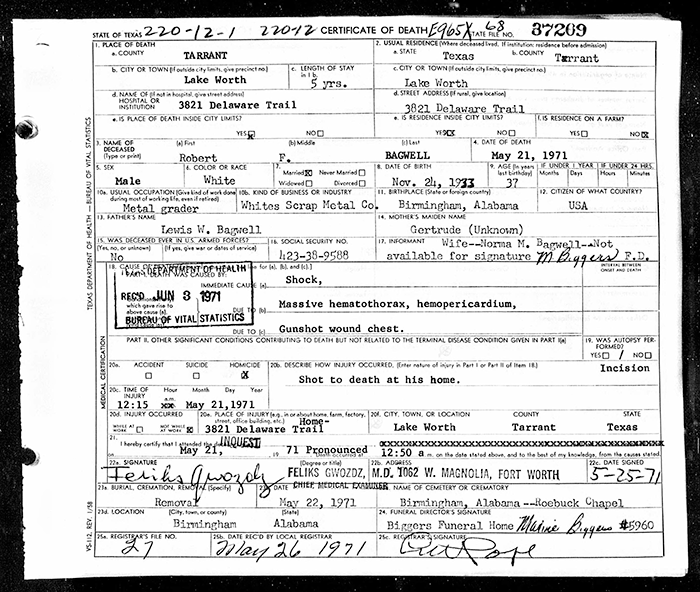 STATE OF TEXAS 220-12-1 22012 CERTIFICATE OF DEATH E965X 68 STATE FILE NO. 37209
1. PLACE OF DEATH
a. COUNTY
TARRANT
2. USUAL RESIDENCE (Where deceased lived. If institution: residence before admission)
a. STATE
Texas
b. COUNTY
Tarrant
b. CITY OR TOWN (If outside city limits, give precinct no.)
Lake Worth
c. LENGTH OF STAY
in 1 b.
5 yrs.
c. CITY OR TOWN (If outside city limits, give precinct no.)
Lake Worth
d. NAME OF (If not in hospital, give street address)
HOSPITAL OR
INSTITUTION
3821 Delaware Trail
d. STREET ADDRESS (If rural, give location)
3821 Delaware Trail
e. IS PLACE OF DEATH INSIDE CITY LIMITS?
YES NO
e. IS RESIDENCE INSIDE CITY LIMITS?
YES NO
f. IS RESIDENCE ON A FARM?
YES NO
3. NAME OF
DECEASED
(Type or print)
(a) First
Robert
(b) Middle
F.
(c) Last
BAGWELL
4. DATE OF DEATH
May 21, 1971
5. SEX
Male
6. COLOR OR RACE
White
7.
Married Never Married
Widowed Divorced
8. DATE OF BIRTH
Nov. 24, 1933
9. AGE (In years
last birthday)
37
IF UNDER 1 YEAR
Months Days
IF UNDER 24 HRS.
Hours Minutes
10a. USUAL OCCUPATION (Give kind of work done
during most of working life, even if retired)
Metal grader
10b. KIND OF BUSINESS OR INDUSTRY
Whites Scrap Metal Co.
11. BIRTHPLACE (State or foreign country)
Birmingham, Alabama
12. CITIZEN OF WHAT COUNTRY?
USA
13. FATHER'S NAME
Lewis W. Bagwell
14. MOTHER'S MAIDEN NAME
Gertrude (Unknown)
15. WAS DECEASED EVER IN U.S. ARMED FORCES?
(Yes, no, or unknown) (If yes, give war or dates of service)
No
16. SOCIAL SECURITY NO.
423-38-9588
17. INFORMANT
Wife--Norma M. Bagwell--Not
available for signature M Biggers F.D.
18. CAUSE OF
line for (a), (b), and (c).]
INTERVAL BETWEEN
ONSET AND DEATH
PART I. DEATH WAS CAUSED BY:
TEXAS DEPARTMENT OF HEALTH
REC'D JUN 3 1971
BUREAU OF VITAL STATISTICS
IMMEDIATE CAUSE (a)
Shock,
which gave rise to
above cause (a)
DUE TO (b)
Massive hematothorax, hemopericardium,
DUE TO (c)
Gunshot wound chest.
PART II. OTHER SIGNIFICANT CONDITIONS CONTRIBUTING TO DEATH BUT NOT RELATED TO THE TERMINAL DISEASE CONDITION GIVEN IN PART I(a)
19. WAS AUTOPSY PER-
FORMED?
YES / NO
Incision
20a. ACCIDENT SUICIDE HOMICIDE
X
20b. DESCRIBE HOW INJURY OCCURRED. (Enter nature of injury in Part I or Part II of item 18.)
Shot to death at his home.
20c. TIME OF
INJURY
Hour Month Day Year
12:15 a.m. xx May 21,1971
20d. INJURY OCCURRED
WHILE AT
WORK
NOT WHILE
AT WORK
20e. PLACE OF INJURY (e.g., in or about home, farm, factory,
street, office building, etc.)
Home-
3821 Delaware Trail
20f. CITY, TOWN, OR LOCATION
Lake Worth
COUNTY
Tarrant
STATE
Texas
21.
I hereby certify that I attended the INQUEST
May 21, 19 71 Pronounced
Death occurred at 12:50 a m. on the date stated above, and to the best of my knowledge, from the causes stated.
22a. SIGNATURE
Feliks Gwozdz
(Degree or title)
FELIKS GWOZDZ, M.D.
CHIEF MEDICAL EXAMINER
22b. ADDRESS
1062 W. MAGNOLIA, FORT WORTH
22c. DATE SIGNED
5-25-71
23a. BURIAL, CREMATION, REMOVAL (Specify)
Removal
23b. DATE
May 22, 1971
23c. NAME OF CEMETERY OR CREMATORY
Birmingham, Alabama--Roebuck Chapel
23d. LOCATION (City, town, or county) (State)
Birmingham Alabama
24. FUNERAL DIRECTOR'S SIGNATURE
Biggers Funeral Home Maxine Biggers #5960
25a. REGISTRAR'S FILE NO.
27
25b. DATE REC'D BY LOCAL REGISTRAR
May 26 1971
25c. REGISTRAR'S SIGNATURE
TEXAS DEPARTMENT OF HEALTH — BUREAU OF VITAL STATISTICS
MEDICAL CERTIFICATION
VS-112, REV. 1/58